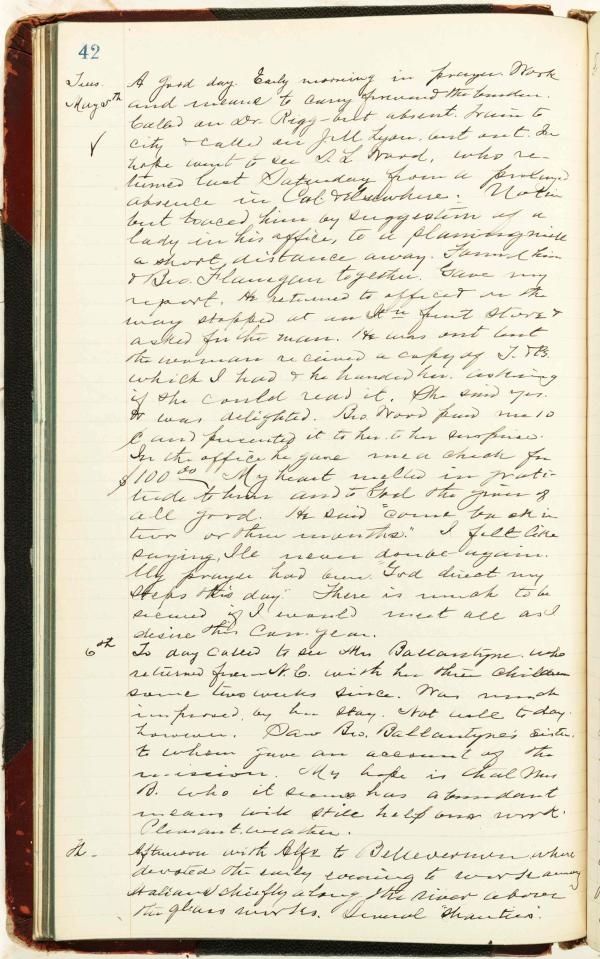 42
Tues. A good day. Early morning in prayer. Work
May 5th and means to carry forward the burden.
Called on Dr. Rigg but absent. Train to
city & called on Jill Lyon but out. In
hope went to see S. L. Wood, who re-
turned last Saturday from a prolonged
absence in Cal & elsewhere. Not in
but traced him by suggestion of a
lady in his office, to a planing mill
a short distance away. Found him
& Bro. Flanegan together. Gave my
report. He returned to office & on the
way stopped at an Itn fruit store &
asked for the man. He was out but
the woman received a copy of
which I had & he handed her asking
if she could read it. She said yes.
& was delighted. Bro. Wood paid me 10
c and presented it to her to her surprise.
In the office he gave me a check for
$100.00 My heart melted in grati-
tude to him and to God the giver of
all good. He said "come back in
two or three months." I felt like
saying, I'le never doubt again.
My prayer had been "God direct my
steps this day." There is much to be
secured if I would meet all as I
desire this Con. year.
6th To day called to see Mrs Ballantype who
returned from N.C. with her three children
some two weeks since. Was much
improved by her stay. Not well to day
however. Saw Bro. Ballantype's sister
to whom gave an account of the
mission. My hope is that Mrs
B. who it seems has abundant
means will still help our work.
Pleasant weather.
th - Afternoon with Alfx to Bellevernon where
devoted the early evening to work among
Italians chiefly along the river above
the glass works. Several "Shanties".